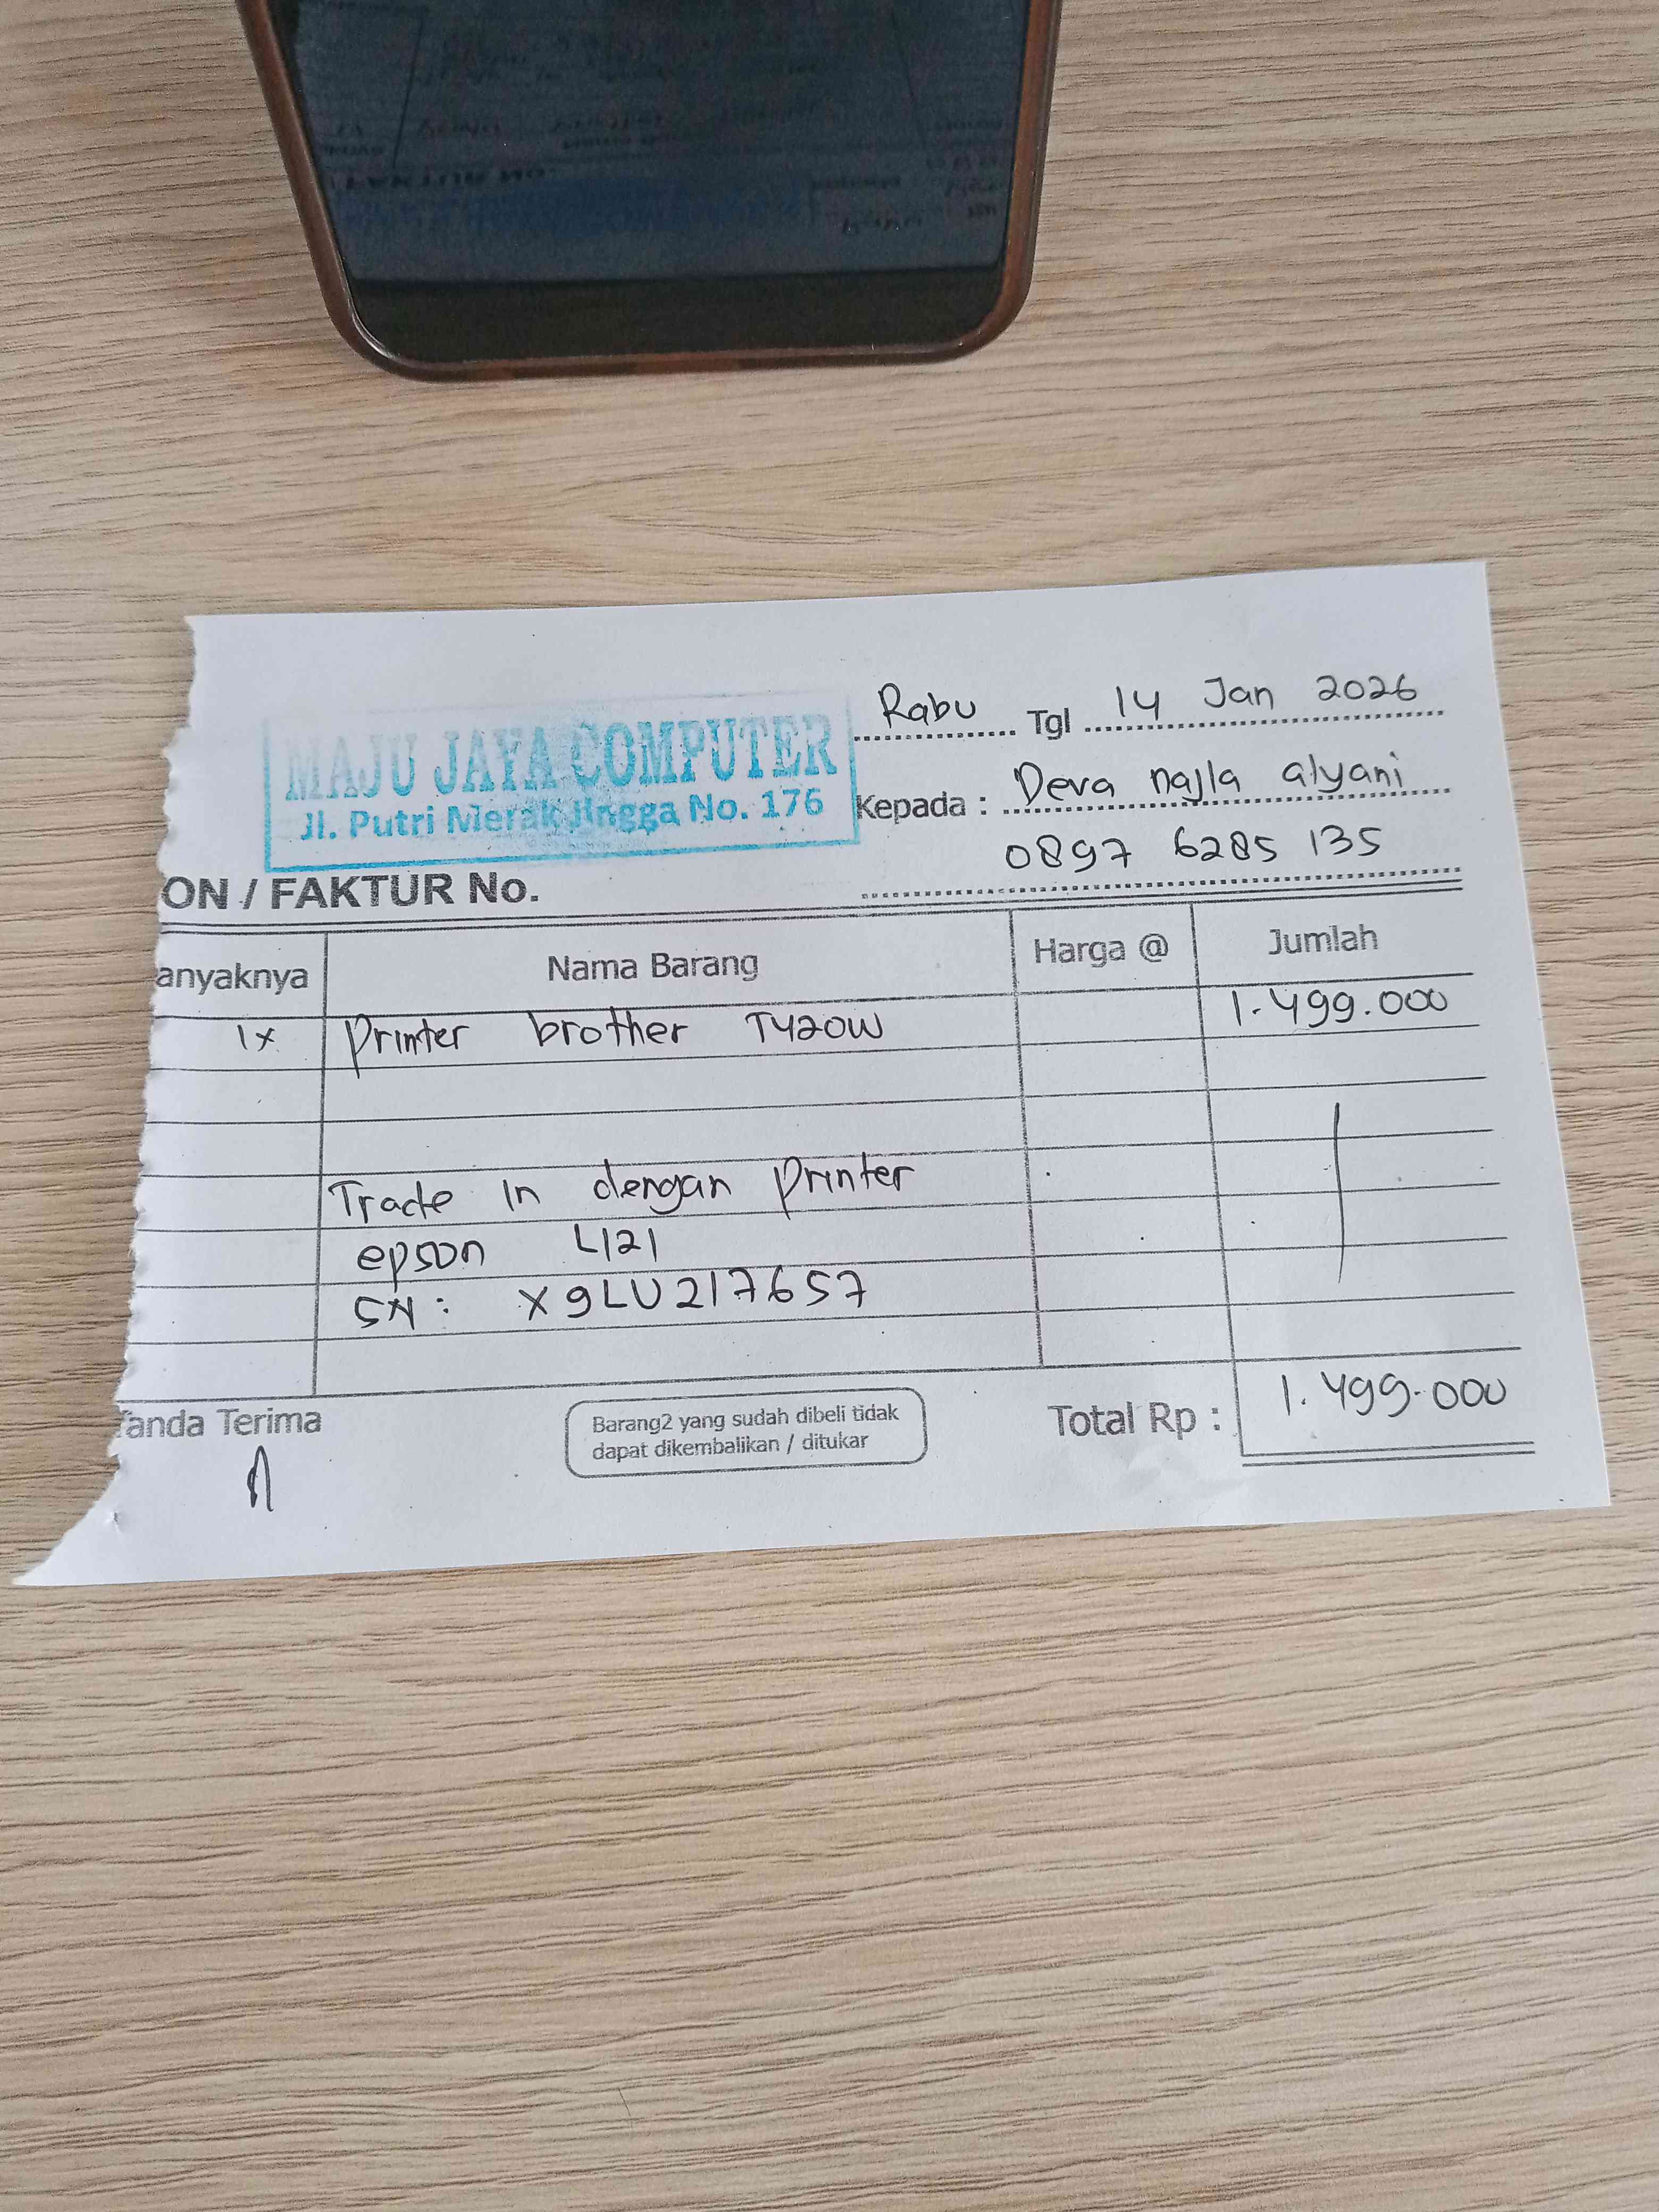 Rabu Tgl 14 Jan 2026
MAJU JAYA COMPUTER
Jl. Putri Merak Jingga No. 176
Kepada : Deva najla alyani
0897 6285 135
ON / FAKTUR No.
anyaknya Nama Barang Harga @ Jumlah
1x Printer brother T420W 1.499.000
Trade in dengan Printer
epson L121
SN : X9LU217657
Tanda Terima
Barang2 yang sudah dibeli tidak
dapat dikembalikan / ditukar
Total Rp : 1.499.000